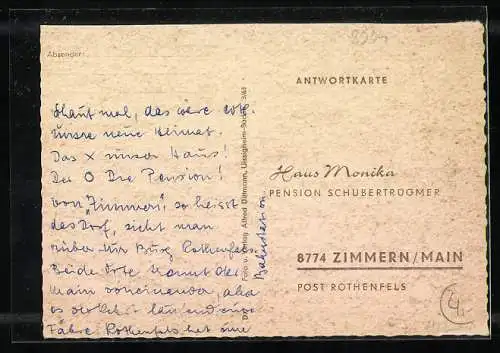 8994
Absender:
ANTWORTKARTE
Schaut mal, das wäre evtl.
unsere neue Heimat.
Das X unser Haus!
Der O Die Pension!
von "Zimmern", so heisst
das Dorf, sieht man
rüber zur Burg Rothenfels.
Beide Orte trennt der
Main voneinander, aber
es verkehrt laufend eine
Fähre. Rothenfels hat eine
Bahnstation.
Foto u. Verlag Alfred Dittmann, Uissigheim
Haus Monika
PENSION SCHUBERTRÜGMER
8774 ZIMMERN/MAIN
POST ROTHENFELS
4,